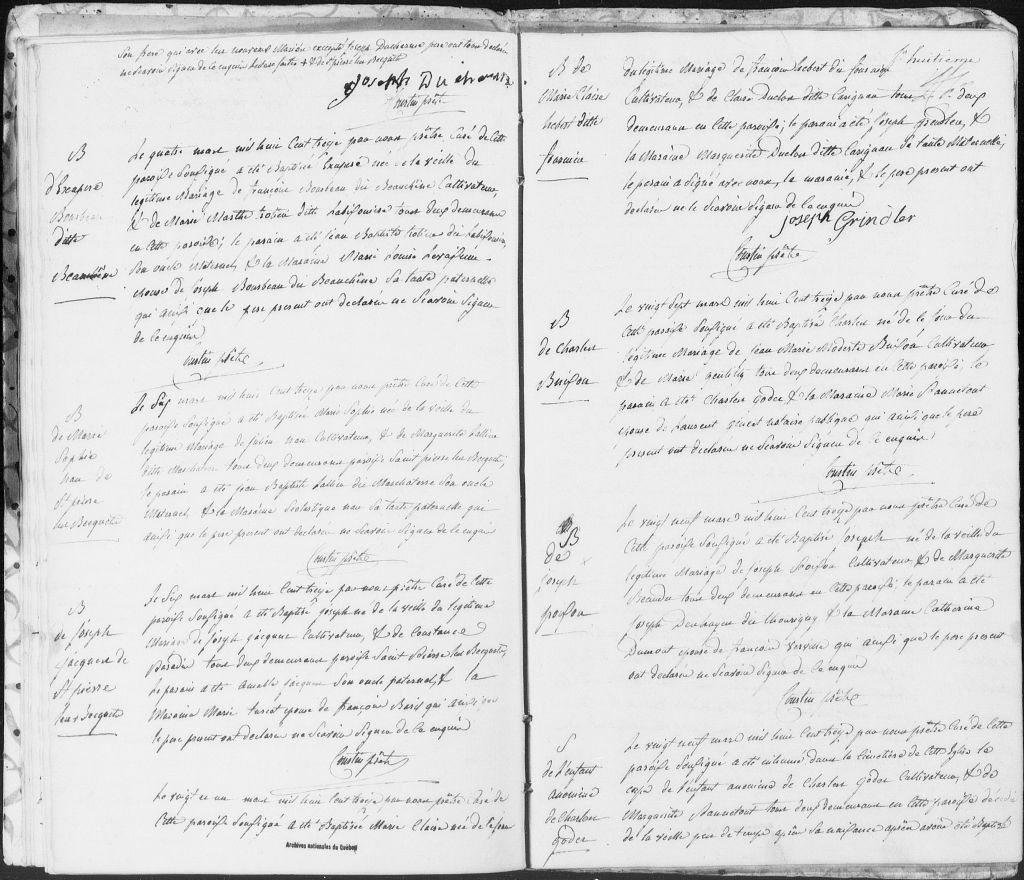 Son frere qui avec les nouveaux Mariés excepté Joseph Duchesne pere ont tous declarés
ne Scavoir Signer de ce enquis
Joseph Duchesne
Courtin ptre
B
d'Exupere
Bourbeau
ditte
Beauchêne
Le quatre mars mil huit Cent treize par nous prêtre Curé de Cette
paroisse Soussigné a été Baptisé Exupere né de la veille du
legitime Mariage de françois Bourbeau dit Beauchêne Cultivateur
& de Marie Marthe trotier ditte Labissonniere tous deux demeurans
en Cette paroisse; le parain a été Jean Baptiste trotier dit Labissonniere,
Son oncle Maternel, & la Maraine Marie Louise
epouse de Joseph Bourbeau dit Beauchêne Sa tante paternelle
qui ainsi que le pere present ont declarés ne Scavoir Signer
de ce enquis
Courtin prêtre
B
de Marie
Sophie
de
St pierre
les Becquets
Le Six mars mil huit Cent treize par nous prêtre Curé de Cette
paroisse Soussigné a été Baptisée Marie Sophie née de la veille du
legitime Mariage de Cultivateur, & de Marguerite
ditte tous deux demeurans paroisse Saint pierre les Becquets;
le parain a été Jean Baptiste dit Son oncle
Maternel, & la Maraine Scolastique Sa tante paternelle qui
ainsi que le pere present ont declarés ne Scavoir Signer de ce enquis
Courtin prêtre
B
de Joseph
jacques de
St pierre
les Becquets
Le Six mars mil huit Cent treize par nous prêtre Curé de Cette
paroisse Soussigné a été Baptisé Joseph né de la veille du legitime
Mariage de Joseph jacques Cultivateur, & de Constance
Paradis tous deux demeurans paroisse Saint Pierre les Becquets,
Le parain a été Amable jacques Son oncle paternel, & la
Maraine Marie epouse de françois Baril qui ainsi que
le pere present ont declarés ne Scavoir Signer de ce enquis
Courtin prêtre
Le vingt et un mars mil huit Cent treize par nous prêtre Curé de
Cette paroisse Soussigné a été Baptisée Marie Claire née de ce jour
Archives nationales du Québec
huitieme
B de
Marie Claire
hebert ditte
du legitime Mariage de francois hebert dit
Cultivateur, & de Claire Duclos ditte Carignan tous deux
demeurans en Cette paroisse; le parain a été Joseph Grindler, &
la Maraine Marguerite Duclos ditte Carignan Sa tante Maternelle,
le parain a Signé avec nous, la maraine, & le pere present ont
declarés ne le Scavoir Signer de ce enquis
Joseph Grindler
Courtin prêtre
B
de Charles
Buisson
Le vingt Sept mars mil huit Cent treize par nous prêtre Curé de
Cette paroisse Soussigné a été Baptisé Charles né de ce jour du
legitime Mariage de Jean Marie Modeste Buisson Cultivateur
& de Marie tous deux demeurans en Cette paroisse; le
parain a été Charles Goder & la Maraine Marie
epouse de Laurent notaire publique qui ainsi que le pere
present ont declarés ne Scavoir Signer de ce enquis
Courtin prêtre
B
de
Joseph
poisson
Le vingt neuf mars mil huit Cent treize par nous prêtre Curé de
Cette paroisse Soussigné a été Baptisé Joseph né de la veille du
legitime Mariage de Joseph poisson Cultivateur, & de Marguerite
tous deux demeurans en Cette paroisse; le parain a été
Joseph & la Maraine Catherine
Dumont epouse de francois Verville qui ainsi que le pere present
ont declarés ne Scavoir Signer de ce enquis
Courtin prêtre
S
de l'enfant
anonime
de Charles
goder
Le vingt neuf mars mil huit Cent treize par nous prêtre Curé de Cette
paroisse Soussigné a été inhumé dans le Cimetière de Cette Eglise le
corps de l'enfant anonime de Charles Goder Cultivateur, & de
Marguerite tous deux demeurans en Cette paroisse décédé
de la veille peu de temps après Sa naissance après avoir été Baptisé